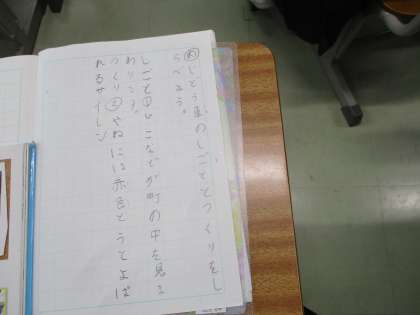 じどう車のしごととつくりをし
らべよう。
しごと などが町の中を見ま
わります。
つくり やねには赤色とうとよば
れるサイレン